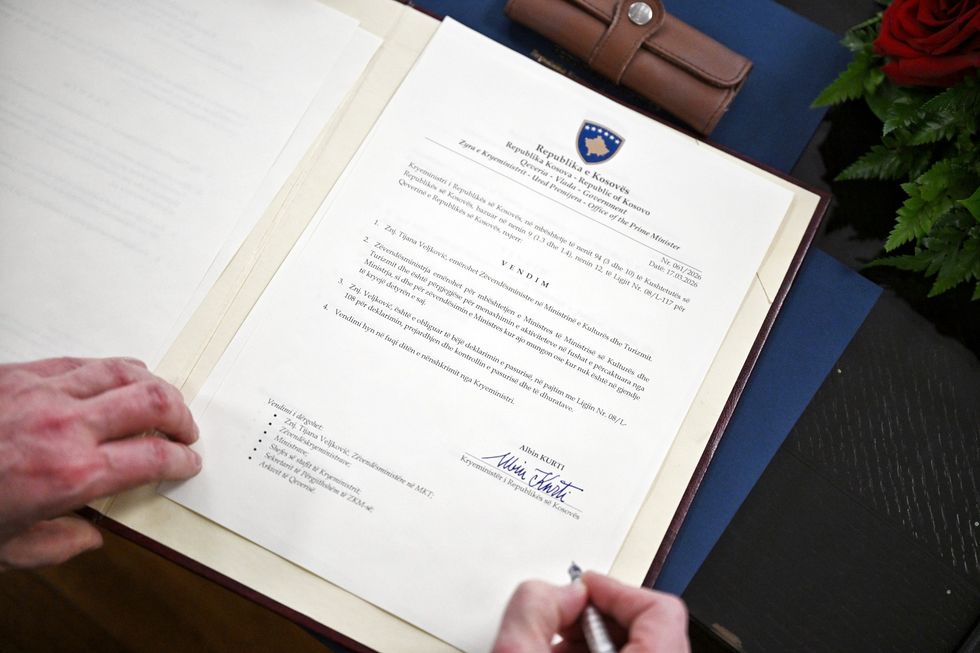 Republika e Kosovës
Republika Kosova - Republic of Kosovo
Qeveria - Vlada - Government
Zyra e Kryeministrit - Ured Premijera - Office of the Prime Minister
Nr. 061/2026
Date: 17.03.2026
Kryeministri i Republikës së Kosovës, në mbështetje të nenit 94 (3 dhe 10) të Kushtetutës së
Republikës së Kosovës, bazuar në nenin 9 (1.3 dhe 1.4), nenin 12, të Ligjit Nr. 08/L-117 për
Qeverinë e Republikës së Kosovës, nxjerr:
VENDIM
1. Znj. Tijana Veljković, emërohet Zëvendësministre në Ministrinë e Kulturës dhe Turizmit.
2. Zëvendësministrja emërohet për mbështetjen e Ministres të Ministrisë së Kulturës dhe
Turizmit dhe është përgjegjëse për menaxhimin e aktiviteteve në fushat e përcaktuara nga
Ministrja, si dhe për zëvendësimin e Ministres kur ajo mungon ose kur nuk është në gjendje
të kryejë detyrën e saj.
3. Znj. Veljković, është e obliguar të bëjë deklarimin e pasurisë, në pajtim me Ligjin Nr. 08/L-
108 për deklarimin, prejardhjen dhe kontrollin e pasurisë dhe të dhuratave.
4. Vendimi hyn në fuqi ditën e nënshkrimit nga Kryeministri.
Albin KURTI
Albin Kurti
Kryeministër i Republikës së Kosovës
Vendimi i dërgohet:
• Znj. Tijana Veljković, Zëvendësministre në MKT;
• Zëvendëskryeministrave;
• Ministrave;
• Shefes së stafit të Kryeministrit;
• Sekretarit të Përgjithshëm të ZKM-së;
• Arkivit të Qeverisë.